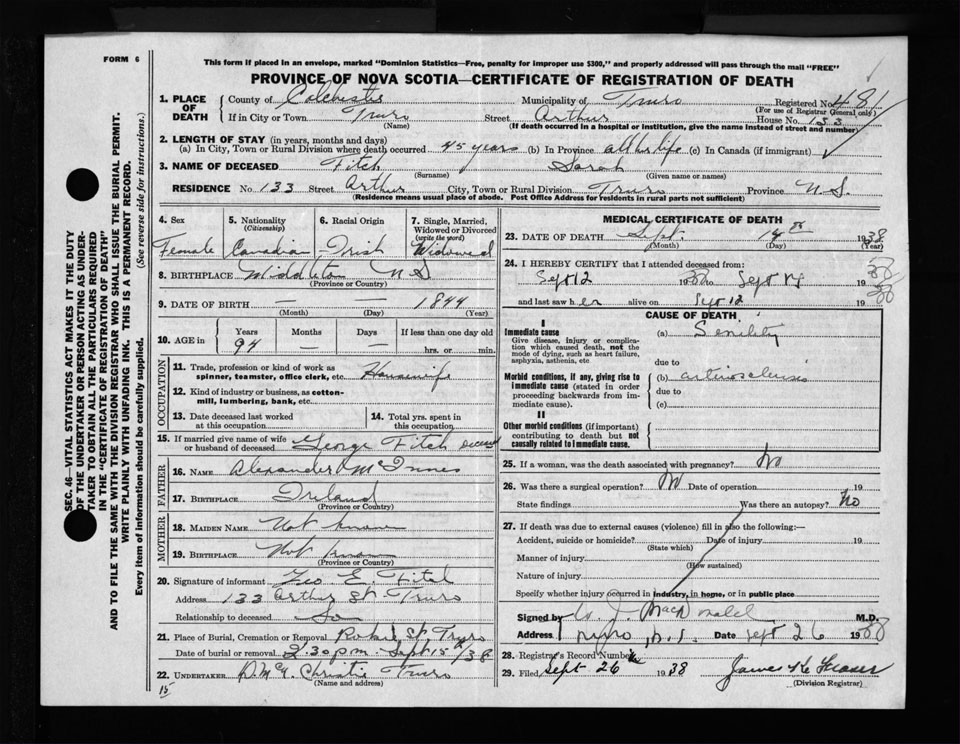 FORM 6
This form if placed in an envelope, marked "Dominion Statistics—Free, penalty for improper use $300," and properly addressed will pass through the mail "FREE"
PROVINCE OF NOVA SCOTIA—CERTIFICATE OF REGISTRATION OF DEATH
SEC. 46—VITAL STATISTICS ACT MAKES IT THE DUTY
OF THE UNDERTAKER OR PERSON ACTING AS UNDER-
TAKER TO OBTAIN ALL THE PARTICULARS REQUIRED
IN THE "CERTIFICATE OF REGISTRATION OF DEATH"
AND TO FILE THE SAME WITH THE DIVISION REGISTRAR WHO SHALL ISSUE THE BURIAL PERMIT.
WRITE PLAINLY WITH UNFADING INK. THIS IS A PERMANENT RECORD.
Every item of information should be carefully supplied. (See reverse side for instructions.)
1. PLACE OF DEATH
County of Colchester Municipality of Truro Registered No. 481
(For use of Registrar General only)
If in City or Town Truro Street Arthur House No. 133
(Name) (If death occurred in a hospital or institution, give the name instead of street and number)
2. LENGTH OF STAY (in years, months and days)
(a) In City, Town or Rural Division where death occurred 45 years (b) In Province all her life (c) In Canada (if immigrant)
3. NAME OF DECEASED Fitch Sarah
(Surname) (Given name or names)
RESIDENCE No. 133 Street Arthur City, Town or Rural Division Truro Province N.S.
(Residence means usual place of abode. Post Office Address for residents in rural parts not sufficient)
4. Sex 5. Nationality (Citizenship) 6. Racial Origin 7. Single, Married, Widowed or Divorced (write the word)
Female Canadian Irish Widowed
8. BIRTHPLACE Middleton N S
(Province or Country)
9. DATE OF BIRTH — — 1844
(Month) (Day) (Year)
10. AGE in Years Months Days If less than one day old
94 — — hrs. or min.
OCCUPATION
11. Trade, profession or kind of work as spinner, teamster, office clerk, etc. Housewife
12. Kind of industry or business, as cotton-mill, lumbering, bank, etc.
13. Date deceased last worked at this occupation
14. Total yrs. spent in this occupation
15. If married give name of wife or husband of deceased George Fitch
FATHER
16. NAME Alexander McInnes
17. BIRTHPLACE Ireland
(Province or Country)
MOTHER
18. MAIDEN NAME Not known
19. BIRTHPLACE Not known
(Province or Country)
20. Signature of informant Geo E. Fitch
Address 133 Arthur St. Truro
Relationship to deceased Son
21. Place of Burial, Cremation or Removal Robie St Truro
Date of burial or removal 2.30 p.m. Sept 15th/38
22. UNDERTAKER Christie Truro
(Name and address)
15
MEDICAL CERTIFICATE OF DEATH
23. DATE OF DEATH Sept. 14th 1938
(Month) (Day) (Year)
24. I HEREBY CERTIFY that I attended deceased from:
Sept 12 1938 to Sept 14 1938
and last saw her alive on Sept 12 1938
CAUSE OF DEATH
I
Immediate cause (a) Senility
Give disease, injury or complication which caused death, not the mode of dying, such as heart failure, asphyxia, asthenia, etc.
due to
Morbid conditions, if any, giving rise to immediate cause (stated in order proceeding backwards from immediate cause).
(b) arteriosclerosis
due to
(c)
II
Other morbid conditions (if important) contributing to death but not causally related to immediate cause.
25. If a woman, was the death associated with pregnancy? No
26. Was there a surgical operation? No Date of operation 19
State findings Was there an autopsy? No
27. If death was due to external causes (violence) fill in also the following:—
Accident, suicide or homicide? Date of injury 19
(State which)
Manner of injury
(How sustained)
Nature of injury
Specify whether injury occurred in industry, in home, or in public place
Signed by J. MacDonald M.D.
Address Truro, N.S. Date Sept 26 1938
28. Registrar's Record Number
29. Filed Sept 26 1938
(Division Registrar)